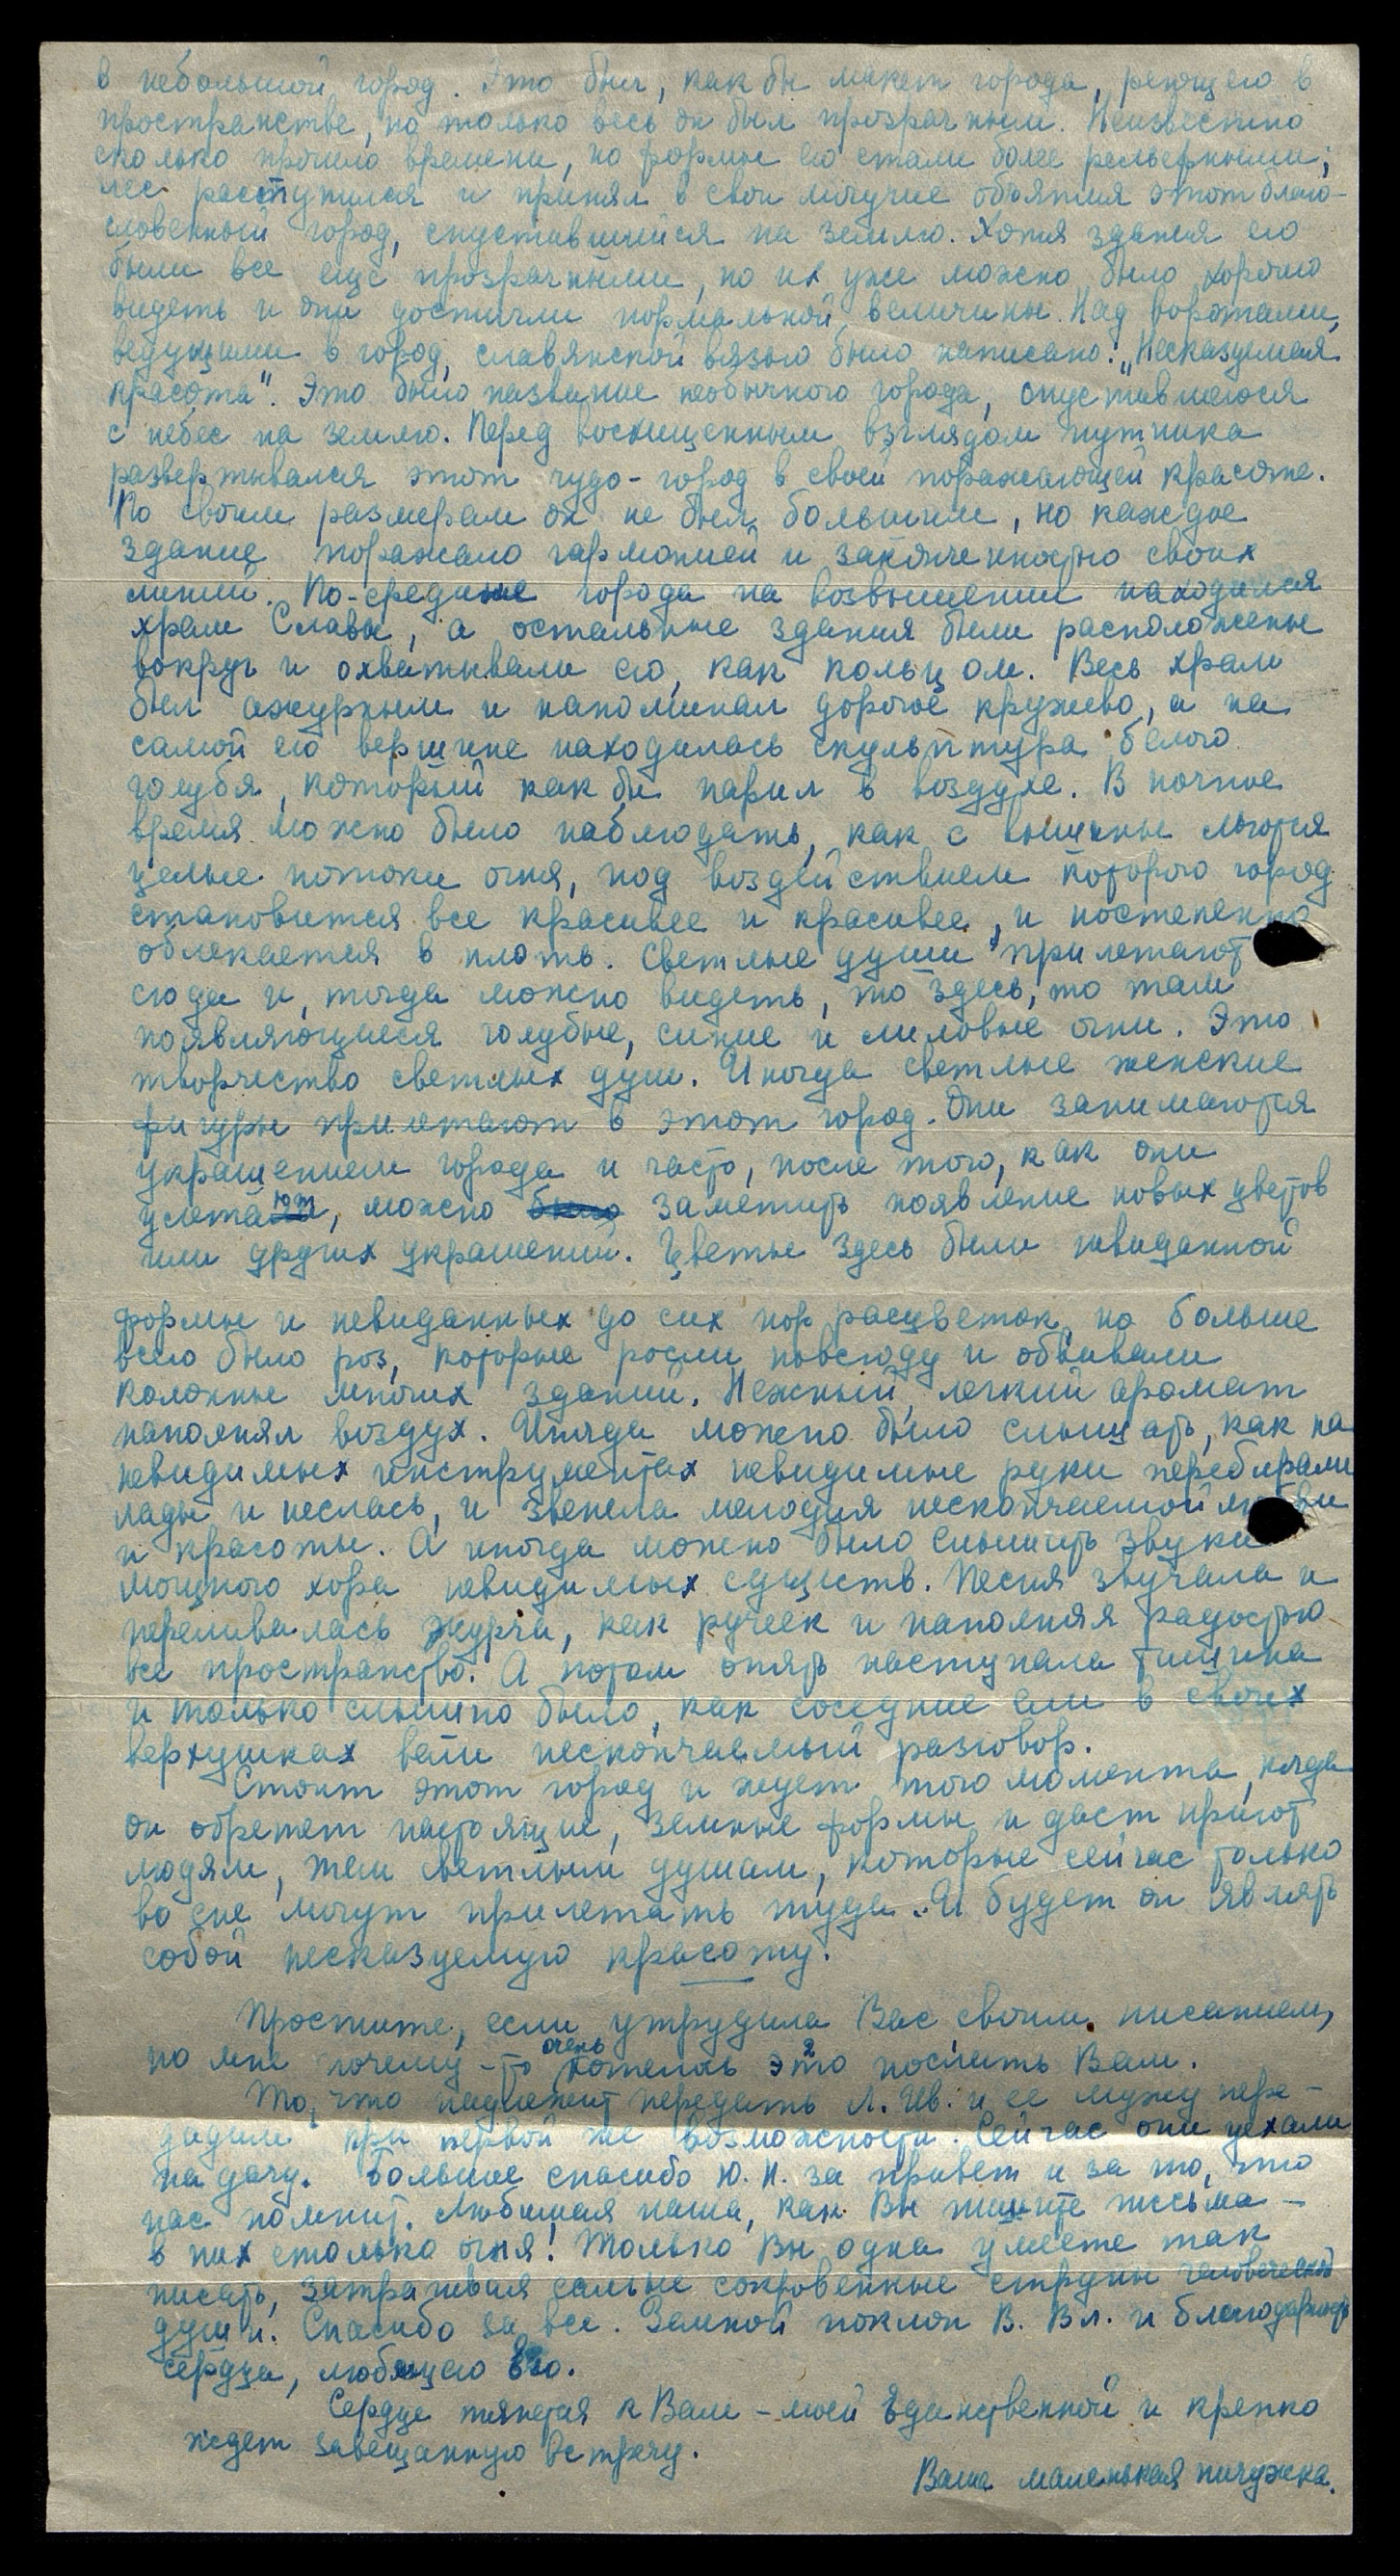 в небольшой город. Это был, как бы макет города, реющего в
пространстве, но только весь он был прозрачным. Неизвестно
сколько прошло времени, но формы его стали более рельефными;
лес расступился и принял в свои могучие объятия этот благо-
словенный город, спустившийся на землю. Хотя здания его
были все еще прозрачными, но их уже можно было хорошо
видеть и они достигли нормальной величины. Над воротами,
ведущими в город, славянской вязью было написано: „Несказуемая
красота". Это было название необычного города, спустившегося
с небес на землю. Перед восхищенным взглядом путника
развертывался этот чудо-город в своей поражающей красоте.
По своим размерам он не был большим, но каждое
здание поражало гармонией и законченностью своих
линий. По-средине города на возвышении находился
храм Славы, а остальные здания были расположены
вокруг и охватывали его, как кольцом. Весь храм
был ажурным и напоминал дорогое кружево, а на
самой его вершине находилась скульптура белого
голубя, который как бы парил в воздухе. В ночное
время можно было наблюдать, как с вышины льются
целые потоки огня, под воздействием которого город
становится все красивее и красивее, и постепенно
облекается в плоть. Светлые души прилетают
сюда и, тогда можно видеть, то здесь, то там
появляющиеся голубые, синие и лиловые огни. Это
творчество светлых душ. Иногда светлые женские
фигуры прилетают в этот город. Они занимаются
украшением города и часто, после того, как они
улетают, можно было заметить появление новых цветов
или других украшений. Цветы здесь были невиданной
формы и невиданных до сих пор расцветок, но больше
всего было роз, которые росли повсюду и обвивали
колонны многих зданий. Нежный, легкий аромат
наполнял воздух. Иногда можно было слышать, как на
невидимых инструментах невидимые руки перебирали
лады и неслась, и звенела мелодия нескончаемой любви
и красоты. А иногда можно было слышать звуки
мощного хора невидимых существ. Песня звучала и
переливалась журча, как ручеек и наполняя радостью
все пространство. А потом опять наступала тишина
и только слышно было, как соседние ели в своих
верхушках вели нескончаемый разговор.
Стоит этот город и ждет того момента, когда
он обретет настоящие, земные формы и даст приют
людям, тем светлым душам, которые сейчас только
во сне могут прилетать туда. И будет он являть
собой несказуемую красоту.
Простите, если утрудила Вас своим писанием,
но мне почему-то очень хотелось это послать Вам.
То, что надлежит передать Л. Ив. и ее мужу пере-
дадим при первой же возможности. Сейчас они уехали
на дачу. Большое спасибо Ю. Н. за привет и за то, что
нас помнит. Любимая наша, как Вы пишите письма –
в них столько огня! Только Вы одна умеете так
писать, затрагивая самые сокровенные струны человеческой
души. Спасибо за все. Земной поклон В. Вл. и благодарность
сердца, любящего Его.
Сердце тянется к Вам – моей Единственной и крепко
ждет завещанную встречу.
Ваша маленькая пичужка.